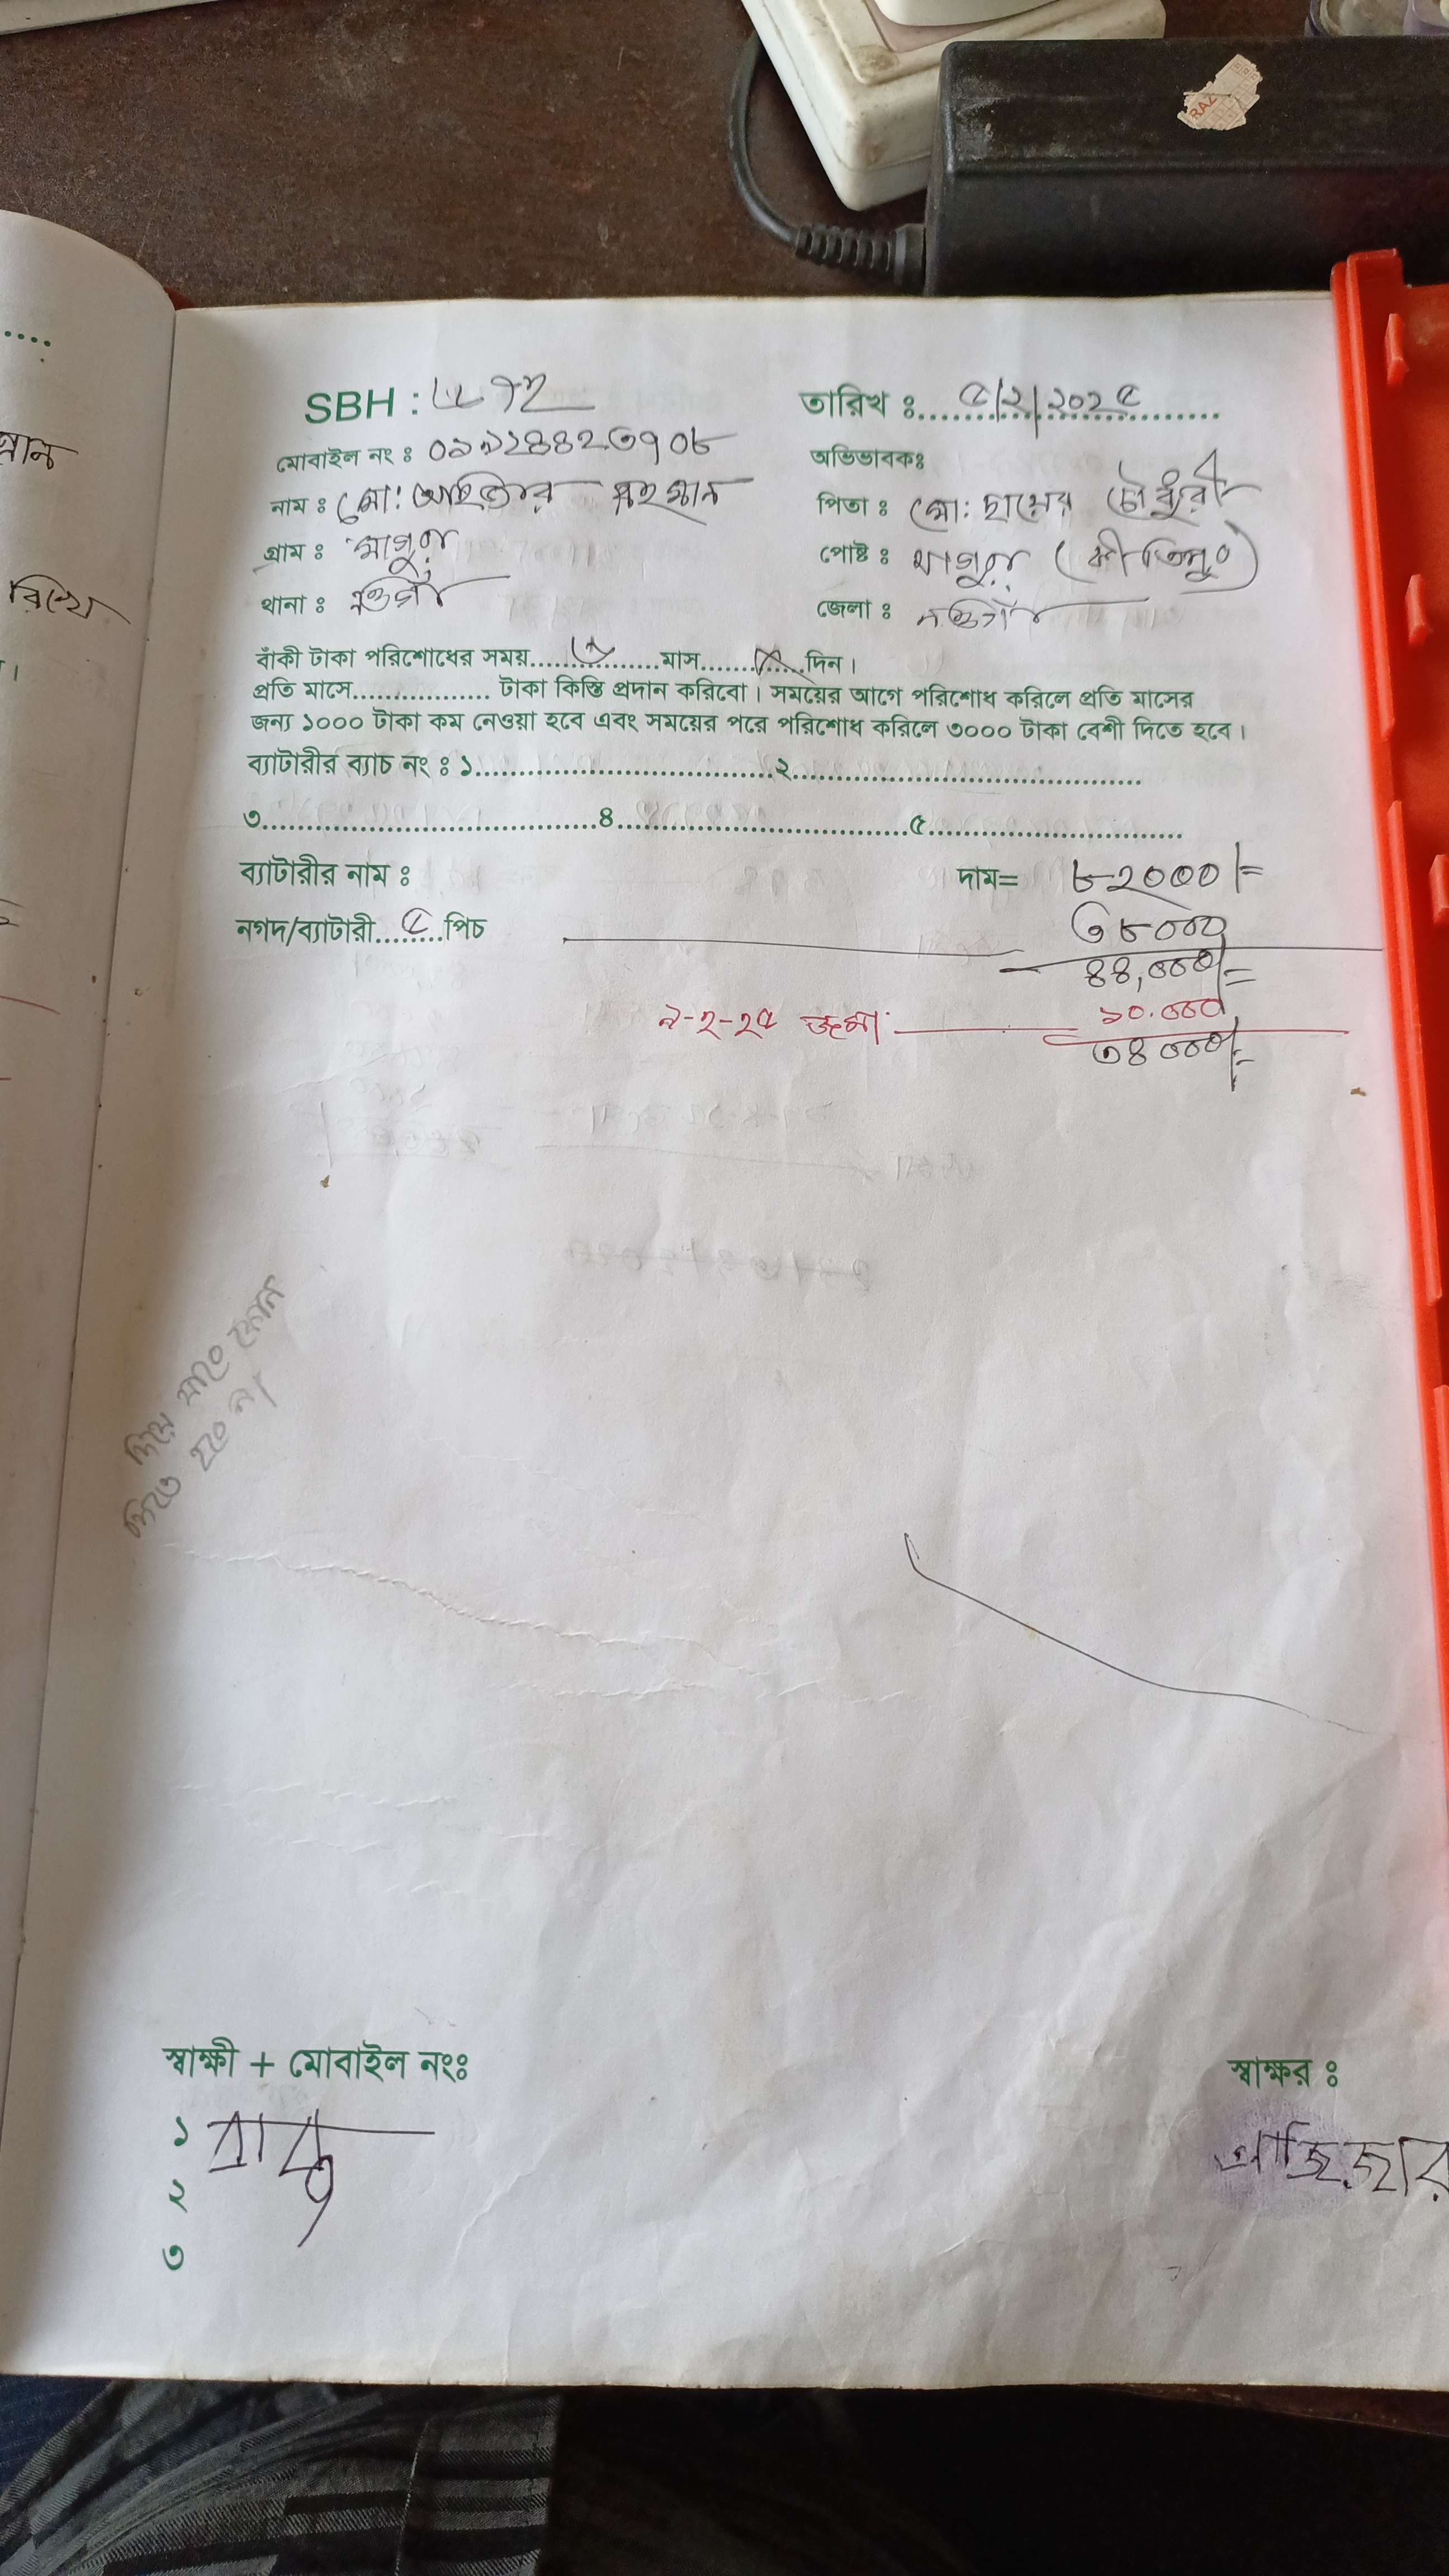 SBH :
তারিখ ঃ ৫/২/২০২৫
মোবাইল নং ঃ ০১৯১৪৪২৩৭০৮
অভিভাবকঃ
নাম ঃ মো: রহমান
পিতা ঃ মো: চৌধুরী
গ্রাম ঃ
পোষ্ট ঃ
থানা ঃ নওগাঁ
জেলা ঃ নওগাঁ
বাঁকী টাকা পরিশোধের সময়..................মাস..............দিন।
প্রতি মাসে................. টাকা কিস্তি প্রদান করিবো। সময়ের আগে পরিশোধ করিলে প্রতি মাসের
জন্য ১০০০ টাকা কম নেওয়া হবে এবং সময়ের পরে পরিশোধ করিলে ৩০০০ টাকা বেশী দিতে হবে।
ব্যাটারীর ব্যাচ নং ঃ ১.....................................২...........................................
৩.........................................৪...................................৫...............................
ব্যাটারীর নাম ঃ
দাম= ৮২০০০/=
নগদ/ব্যাটারী...৫...পিচ
৩৮০০০
৪৪,০০০/=
৯-২-২৫ জমা ১০.০০০
৩৪০০০/=
দিয়ে যাবে কোন
দিতে হবে না
স্বাক্ষী + মোবাইল নংঃ
স্বাক্ষর ঃ
১
আজিজার
২
৩